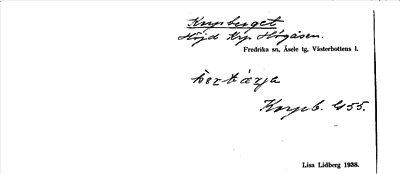 Korpberget
Höjd Krp Högåsen.
Fredrika sn, Åsele tg, Västerbottens l.
Korpb. 455.
Lisa Lidberg 1938.